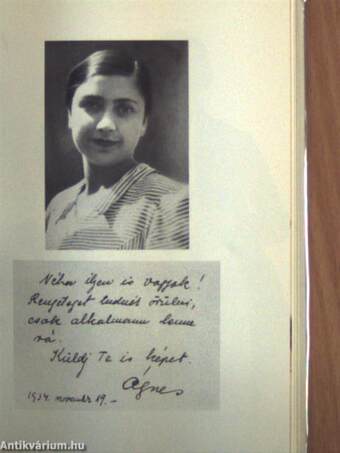 Néha ilyen is vagyok!
Rengeteget tudnék örülni,
csak alkalmam lenne
rá.
Küldj Te is képet.
Ágnes
1934. november 19.-
Antikvárium.hu